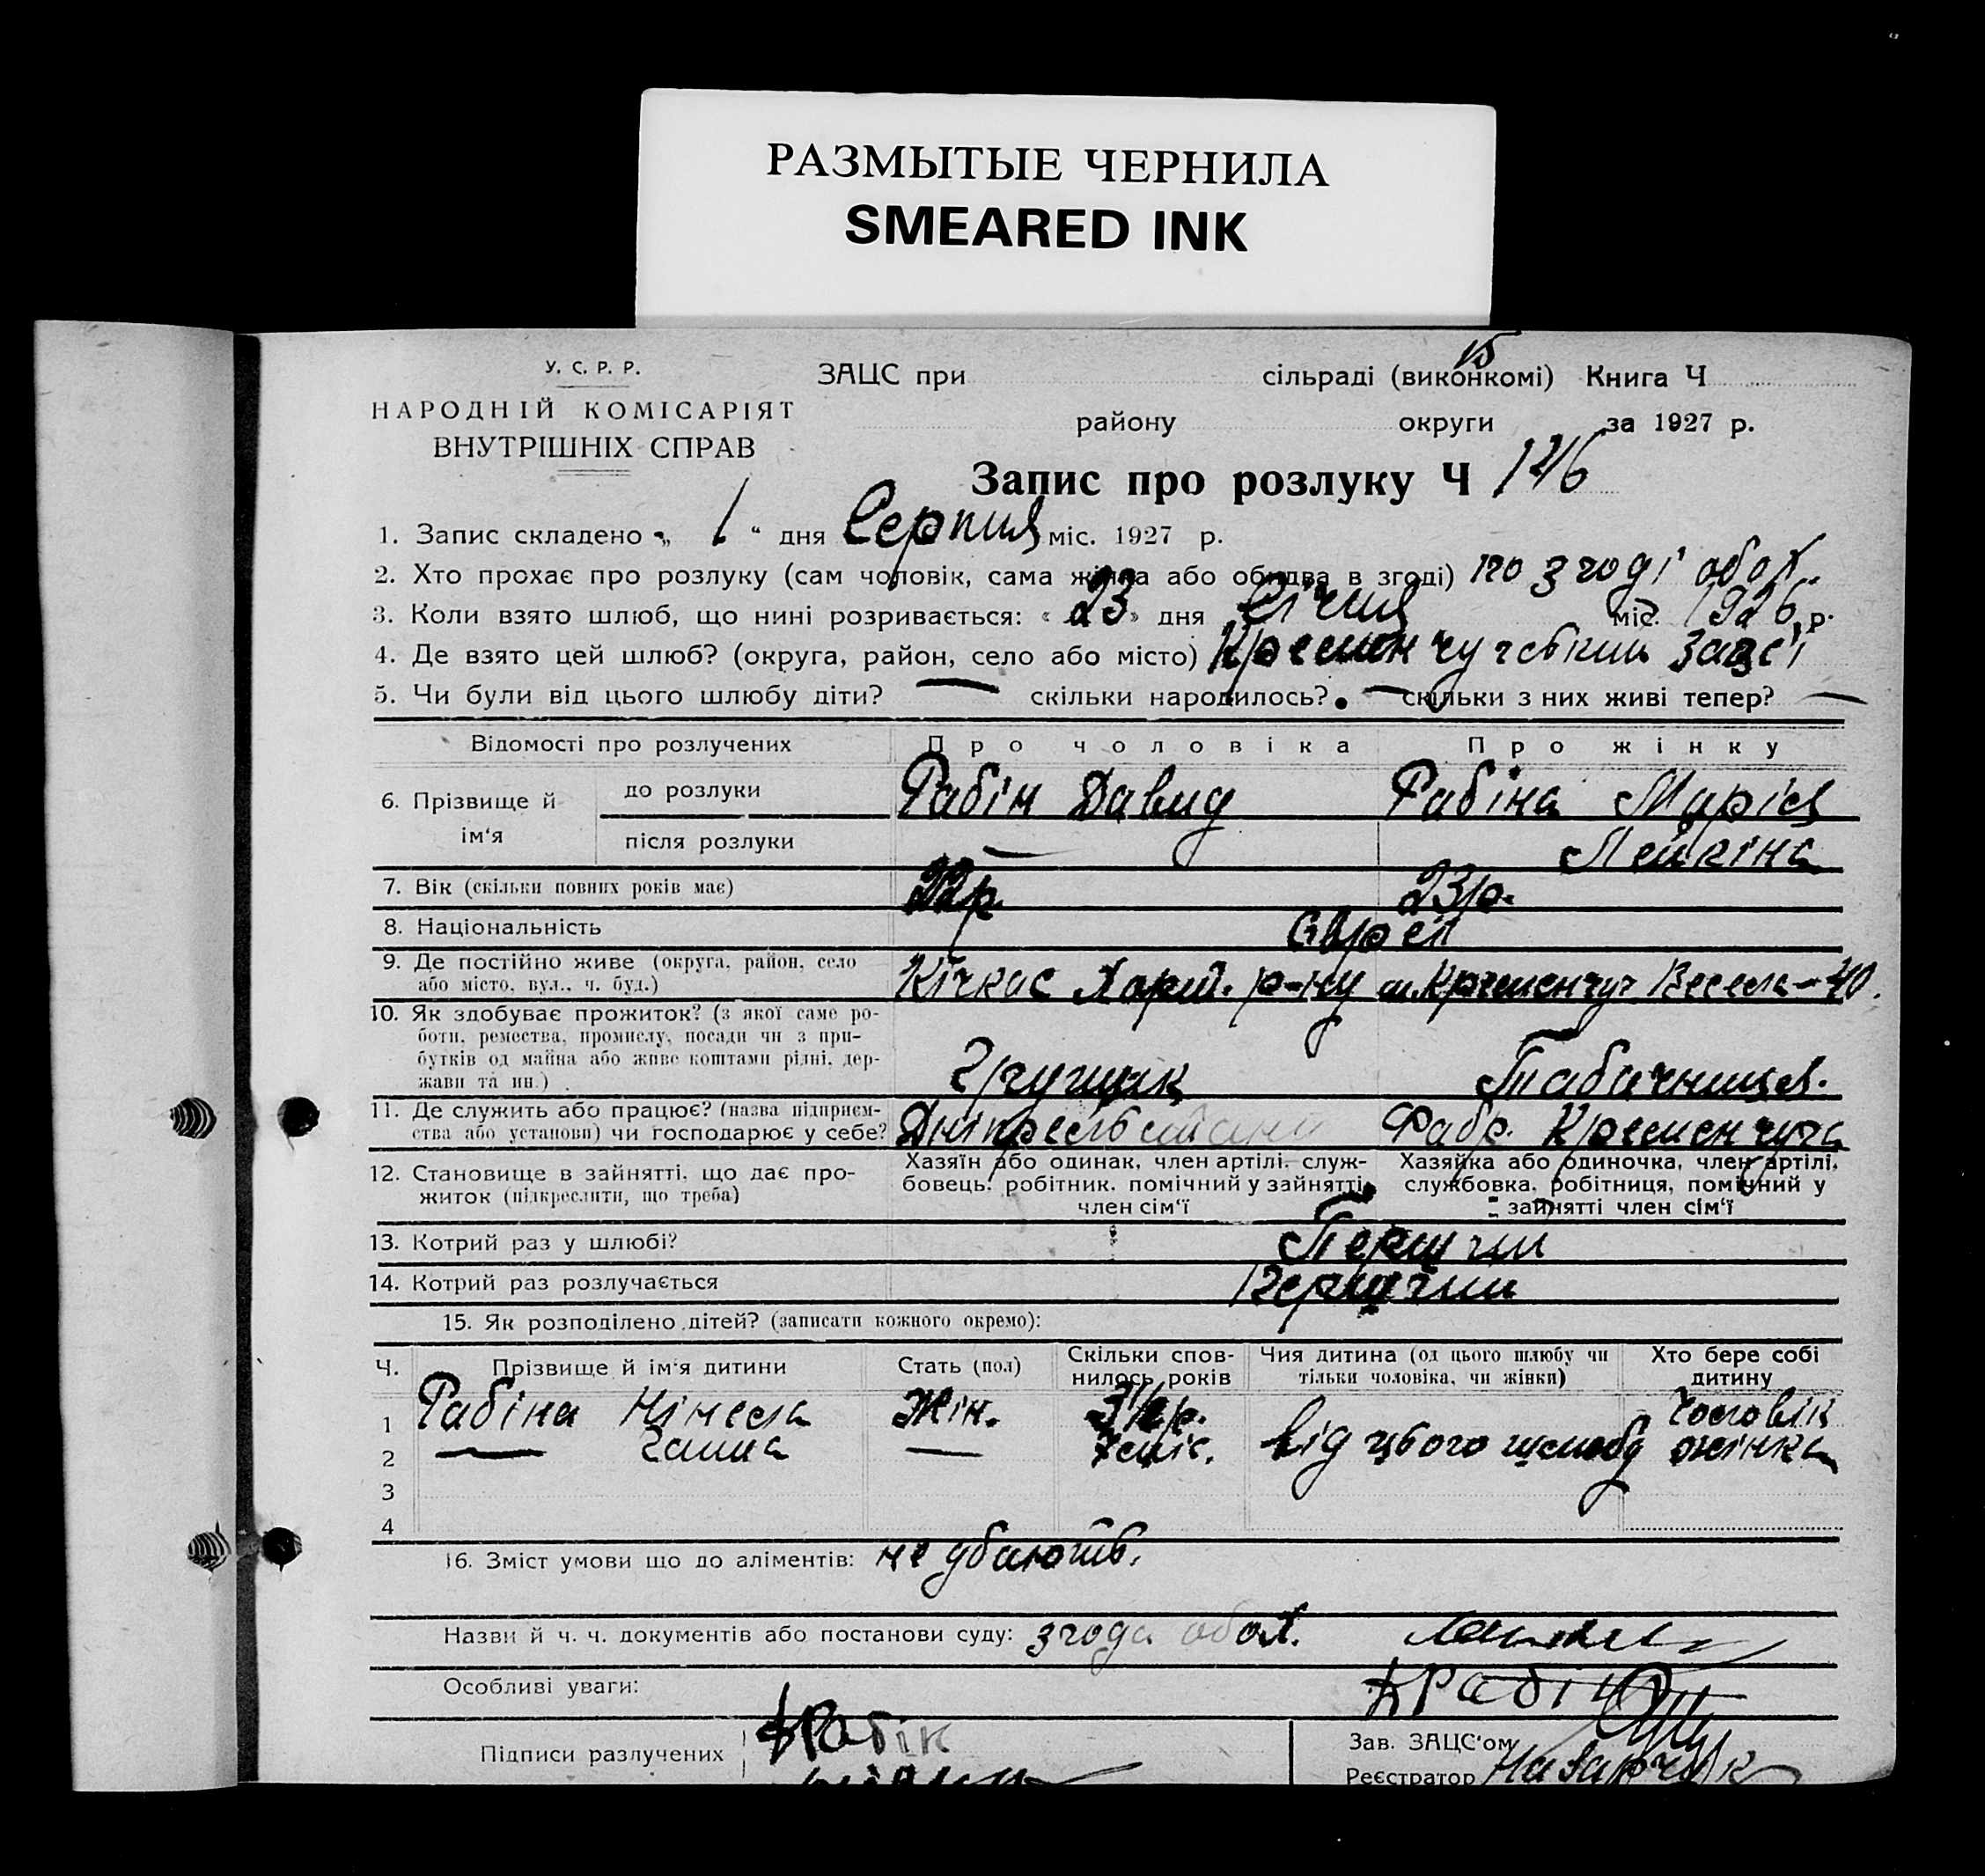 РАЗМЫТЫЕ ЧЕРНИЛА
SMEARED INK
У. С. Р. Р.
НАРОДНІЙ КОМІСАРІЯТ
ВНУТРІШНІХ СПРАВ
ЗАЦС при сільраді (виконкомі) Книга Ч
району округи за 1927 р.
Запис про розлуку Ч 146
1. Запис складено „ 1 “ дня Серпня міс. 1927 р.
2. Хто прохає про розлуку (сам чоловік, сама жінка або обидва в згоді) по згоді обох.
3. Коли взято шлюб, що нині розривається: « 23 » дня Січня міс. 1926 р.
4. Де взято цей шлюб? (округа, район, село або місто) Кременчучський Зацсі
5. Чи були від цього шлюбу діти? — скільки народилось? — скільки з них живі тепер? —
Відомості про розлучених Про чоловіка Про жінку
6. Прізвище й ім‘я до розлуки Рабін Давид Рабіна Марія
після розлуки — Лейкіна
7. Вік (скільки повних років має) 22р. 23р.
8. Національність Євреї
9. Де постійно живе (округа, район, село або місто, вул., ч. буд.) Кічкас р-ну м. Кременчуг Весела—40.
10. Як здобуває прожиток? (з якої саме роботи, ремества, промислу, посади чи з прибутків од майна або живе коштами рідні, держави та ин.) Грущик Табачниця.
11. Де служить або працює? (назва підприємства або установи) чи господарює у себе? Фабр. Кременчуга
12. Становище в зайнятті, що дає прожиток (підкреслити, що треба)
Хазяїн або одинак, член артілі, службовець, робітник, помічний у зайнятті член сім‘ї
Хазяйка або одиночка, член артілі, службовка, робітниця, помічний у зайнятті член сім‘ї
13. Котрий раз у шлюбі? Перший
14. Котрий раз розлучається Перший
15. Як розподілено дітей? (записати кожного окремо):
Ч. Прізвище й ім‘я дитини Стать (пол) Скільки сповнилось років Чия дитина (од цього шлюбу чи тільки чоловіка, чи жінки) Хто бере собі дитину
1 Рабіна Нінела Жін. 3½р. Чоловік
2 — Ганна — 7 міс. від цього шлюбу жінка
3
4
16. Зміст умови що до аліментів: не убають.
Назви й ч. ч. документів або постанови суду: згода обох.
Особливі уваги:
Підписи разлучених Рабік
Зав. ЗАЦС‘ом
Реєстратор Назарчук